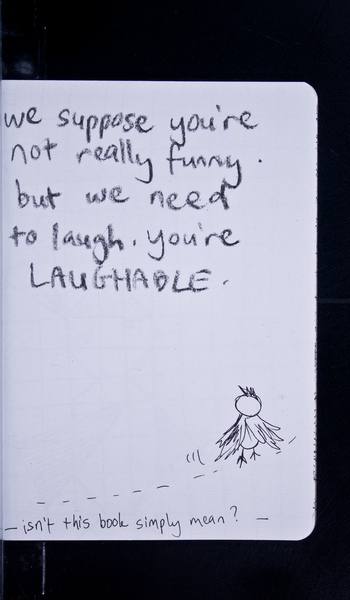 we suppose you're
not really funny.
but we need
to laugh. you're
LAUGHABLE.
— isn't this book simply mean? —